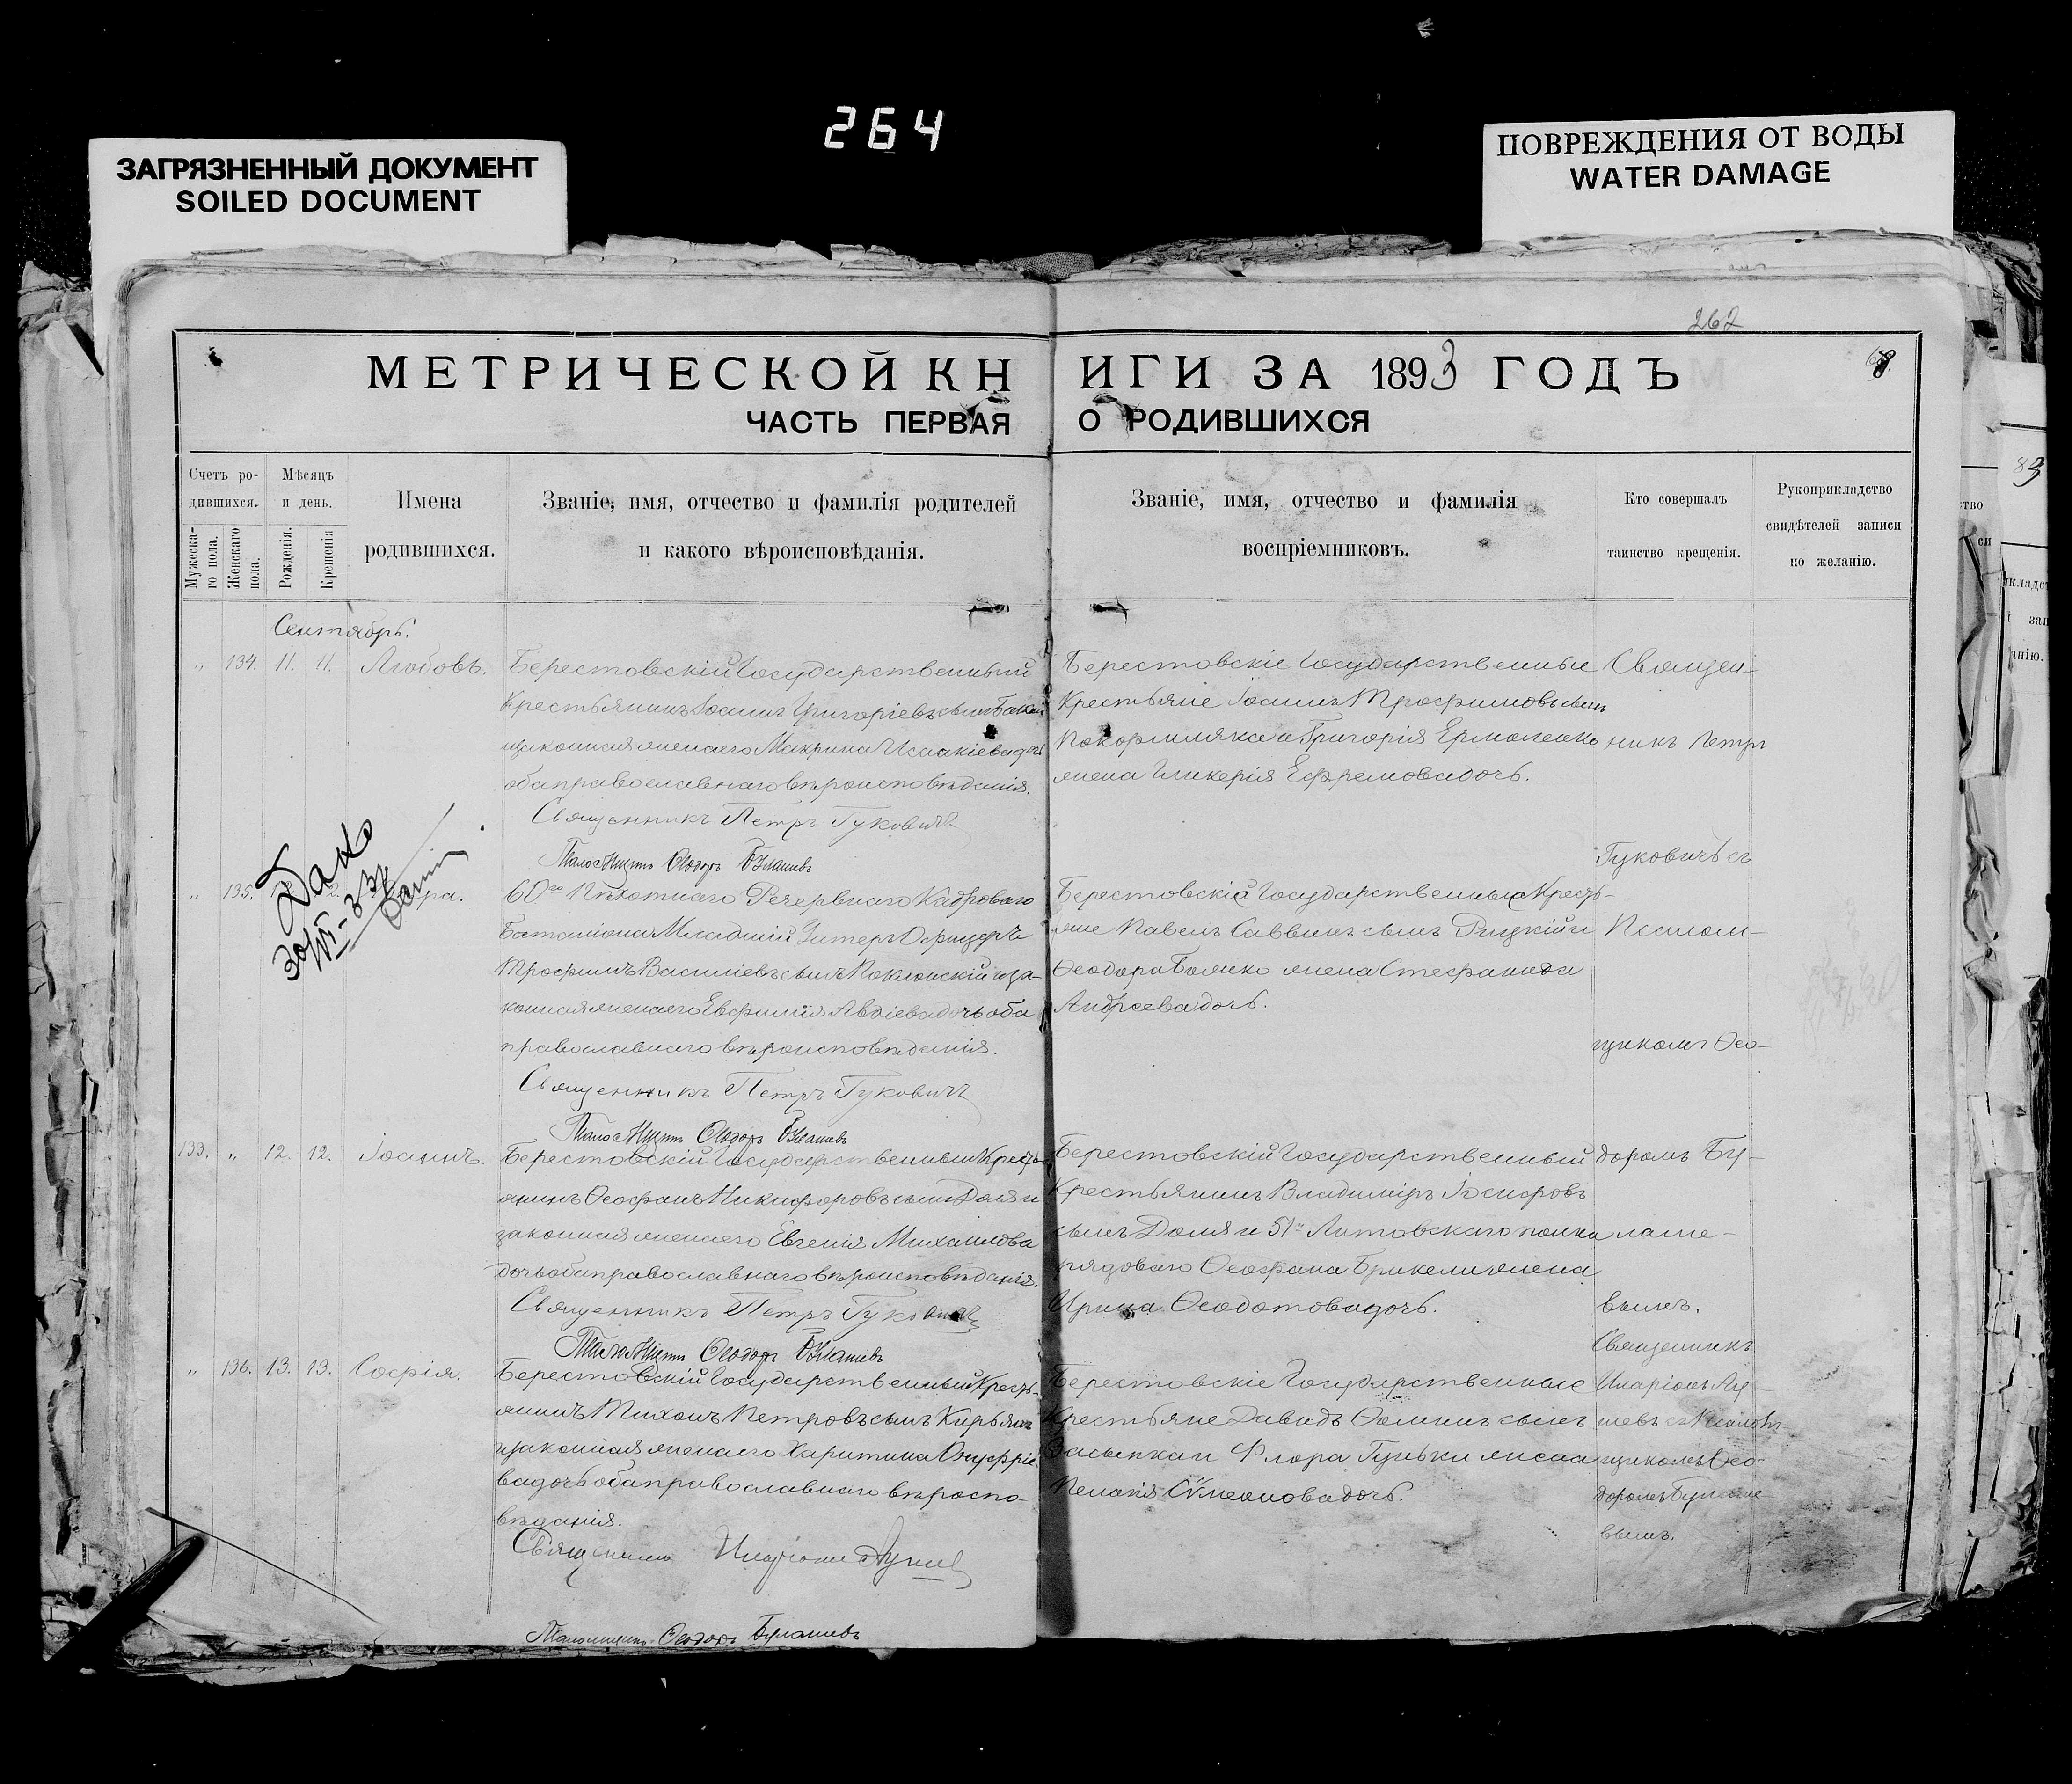 264
ЗАГРЯЗНЕННЫЙ ДОКУМЕНТ
SOILED DOCUMENT
ПОВРЕЖДЕНИЯ ОТ ВОДЫ
WATER DAMAGE
262
МЕТРИЧЕСКОЙ КНИГИ ЗА 1893 ГОДЪ
ЧАСТЬ ПЕРВАЯ О РОДИВШИХСЯ
Счетъ ро-
дившихся.
Мужеска-
го пола.
Женскаго
пола.
Мѣсяцъ
и день.
Рожденія.
Крещенія
Имена
родившихся.
Званіе, имя, отчество и фамилія родителей
и какого вѣроисповѣданія.
Званіе, имя, отчество и фамилія
воспріемниковъ.
Кто совершалъ
таинство крещенія.
Рукоприкладство
свидѣтелей записи
по желанію.
Сентябрь.
„ 134. 11. 11. Любовь.
Берестовскій Государственный
Крестьянинъ Іоаннъ Григоріевъ сынъ
и законная жена его Макрина Исаакіева дочь
оба православнаго вѣроисповѣданія.
Священникъ Петръ Гуковичъ
Псаломщикъ Ѳеодоръ Булашевъ
Берестовскіе Государственные
Крестьяне Іоаннъ Трофимовъ сынъ
Покормляка и Григорія Ермоленко
жена Гликерія Ефремова дочь.
Священ-
никъ Петръ
Гуковичъ съ
Дано
30/VI-33
„ 135.
60го Пѣхотнаго Резервнаго Кадроваго
Баталіона Младшій Унтеръ Офицеръ
Трофимъ Василіевъ сынъ Поклонскій и за-
конная жена его Евфимія Авдіева дочь оба
православнаго вѣроисповѣданія.
Священникъ Петръ Гуковичъ
Псаломщикъ Ѳеодоръ Булашевъ
Берестовскіе Государственные Кресть-
яне Павелъ Саввинъ сынъ Рицкій и
Ѳеодора Бойко жена Стефанида
Андреева дочь.
Псалом-
щикомъ Ѳео-
133. „ 12. 12. Іоаннъ.
Берестовскій Государственный Кресть-
янинъ Ѳеофанъ Никифоровъ сынъ Доля и
законная жена его Евгенія Михаилова
дочь оба православнаго вѣроисповѣданія.
Священникъ Петръ Гуковичъ
Псаломщикъ Ѳеодоръ Булашевъ
Берестовскій Государственный
Крестьянинъ Владиміръ Іосифовъ
сынъ Доля и 51го Литовскаго полка
рядоваго Ѳеофана жена
Ирина Ѳеодотова дочь.
доромъ Бу-
лаше-
вымъ.
„ 136. 13. 13. Софія.
Берестовскій Государственный Кресть-
янинъ Тихонъ Петровъ сынъ Кирьянъ
и законная жена его Харитина Онуфріе-
ва дочь оба православнаго вѣроиспо-
вѣданія.
Священникъ Иларіонъ
Псаломщикъ Ѳеодоръ Булашевъ
Берестовскіе Государственные
Крестьяне Давидъ Ѳоминъ сынъ
Засыпка и Флора Гуньки жена
Пелагія Сѵмеонова дочь.
Священникъ
Иларіонъ
съ Псалом-
щикомъ Ѳео-
доромъ Булаше-
вымъ.
83